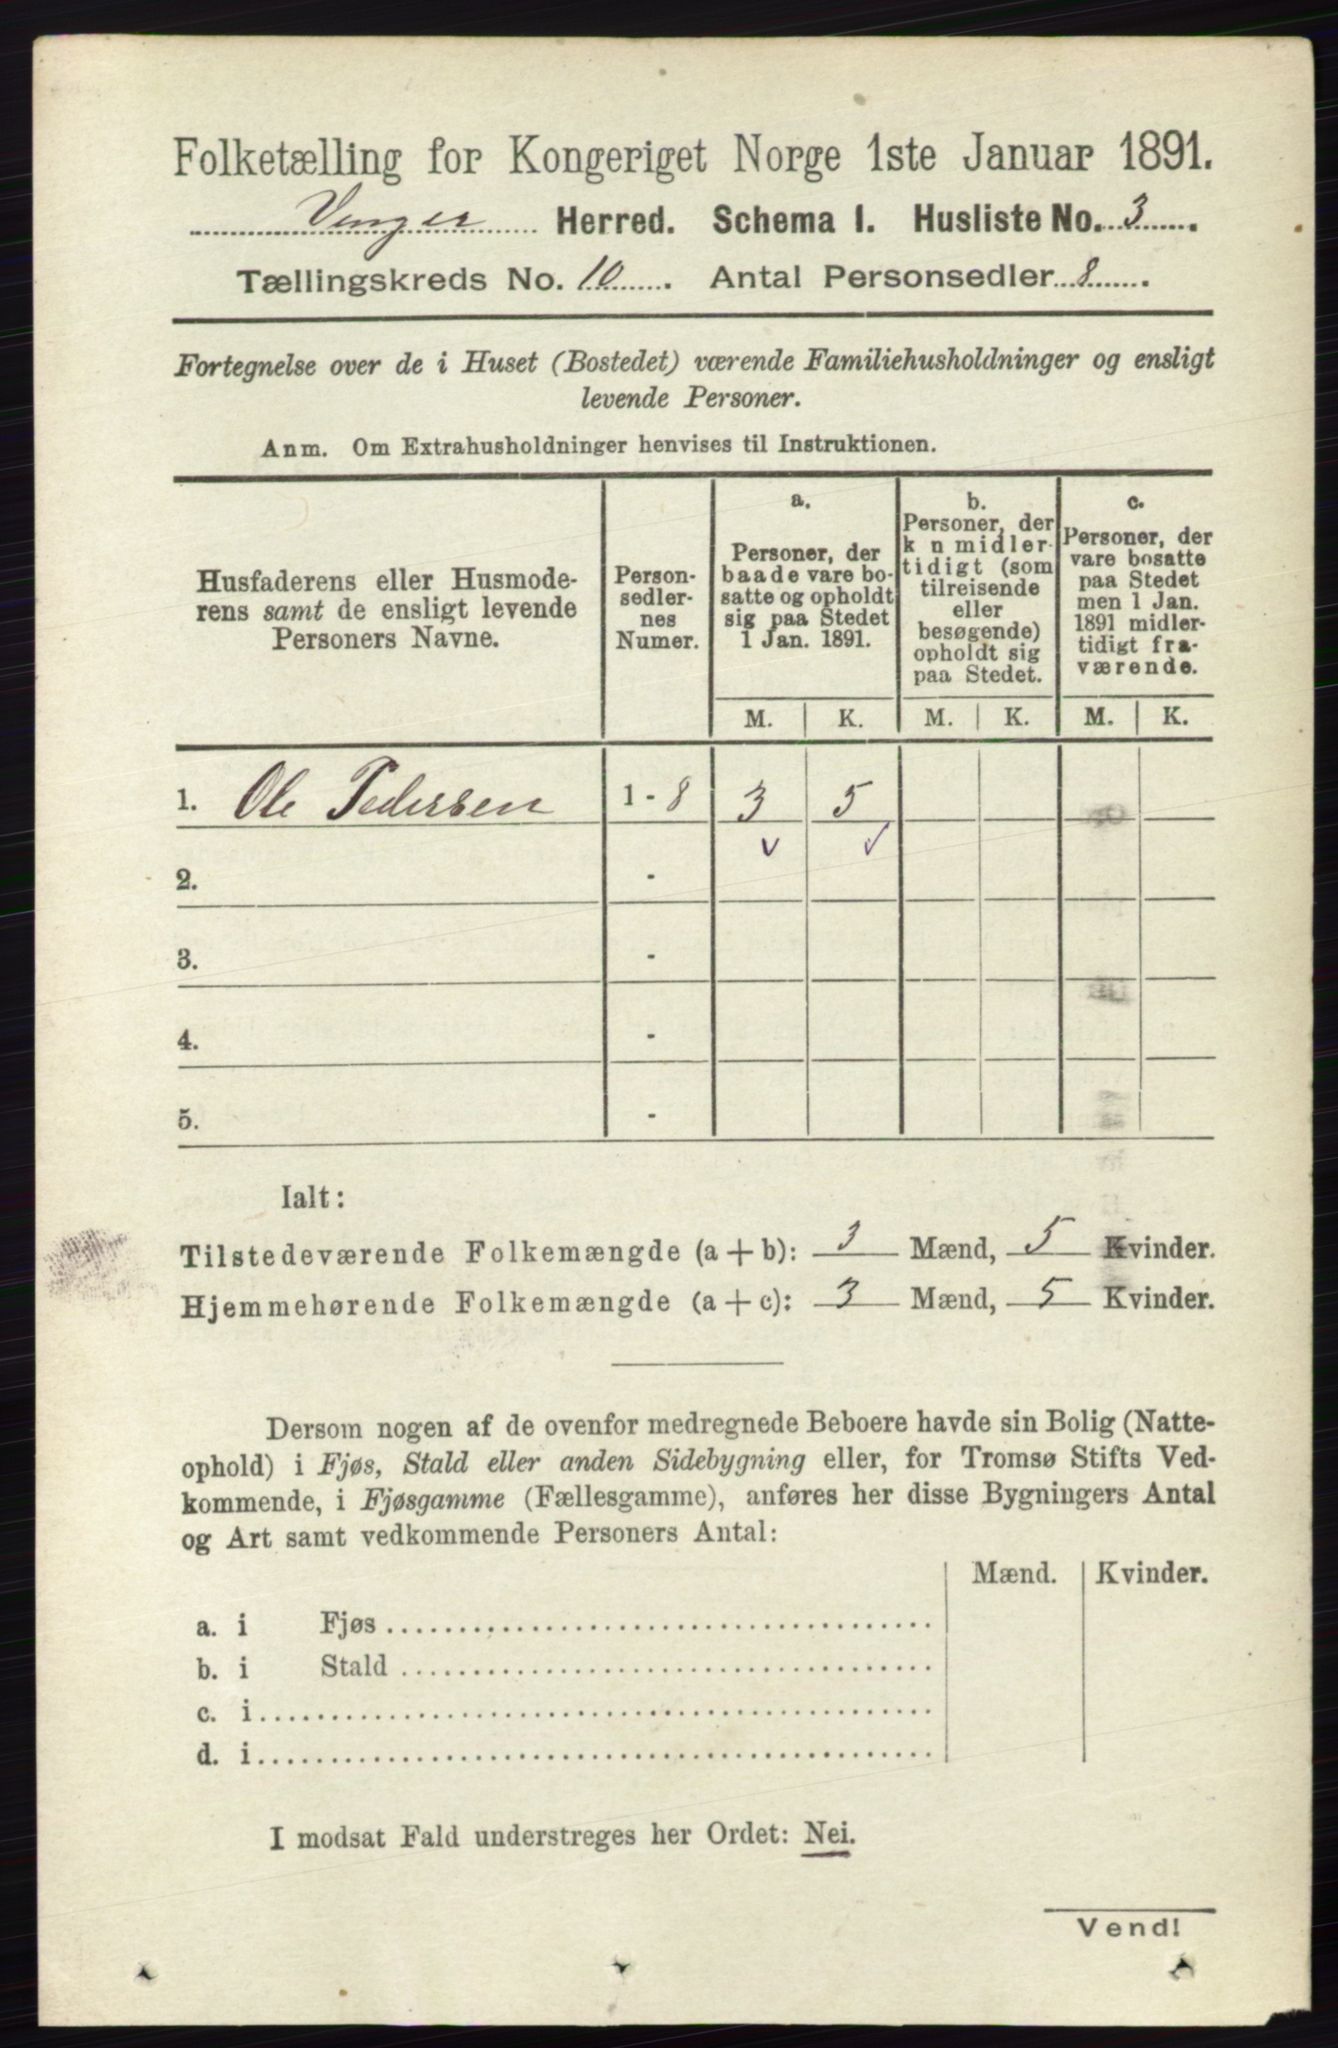 Folketælling for Kongeriget Norge 1ste Januar 1891.
Vinger Herred. Schema I. Husliste No. 3.
Tællingskreds No. 10. Antal Personsedler 8.
Fortegnelse over de i Huset (Bostedet) værende Familiehusholdninger og ensligt
levende Personer.
Anm. Om Extrahusholdninger henvises til Instruktionen.
Husfaderens eller Husmode-
rens samt de ensligt levende
Personers Navne.
Person-
sedler-
nes
Numer.
a.
Personer, der
baade vare bo-
satte og opholdt
sig paa Stedet
1 Jan. 1891.
b.
Personer, der
k n midler-
tidigt (som
tilreisende
eller
besøgende)
opholdt sig
paa Stedet.
c.
Personer, der
vare bosatte
paa Stedet
men 1 Jan.
1891 midler-
tidigt fra-
værende.
M. K. M. K. M. K.
1. Ole Pedersen 1 - 8 3 5
2. -
3. -
4. -
5. -
Ialt:
Tilstedeværende Folkemængde (a + b): 3 Mænd, 5 Kvinder.
Hjemmehørende Folkemængde (a + c): 3 Mænd, 5 Kvinder.
Dersom nogen af de ovenfor medregnede Beboere havde sin Bolig (Natte-
ophold) i Fjøs, Stald eller anden Sidebygning eller, for Tromsø Stifts Ved-
kommende, i Fjøsgamme (Fællesgamme), anføres her disse Bygningers Antal
og Art samt vedkommende Personers Antal:
Mænd. Kvinder.
a. i Fjøs
b. i Stald
c. i
d. i
I modsat Fald understreges her Ordet: Nei.
Vend!